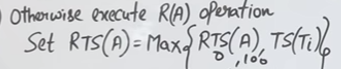 Otherwise execute R(A) operation
Set RTS(A) = Max{RTS(A), TS(Ti)}
0 , 100